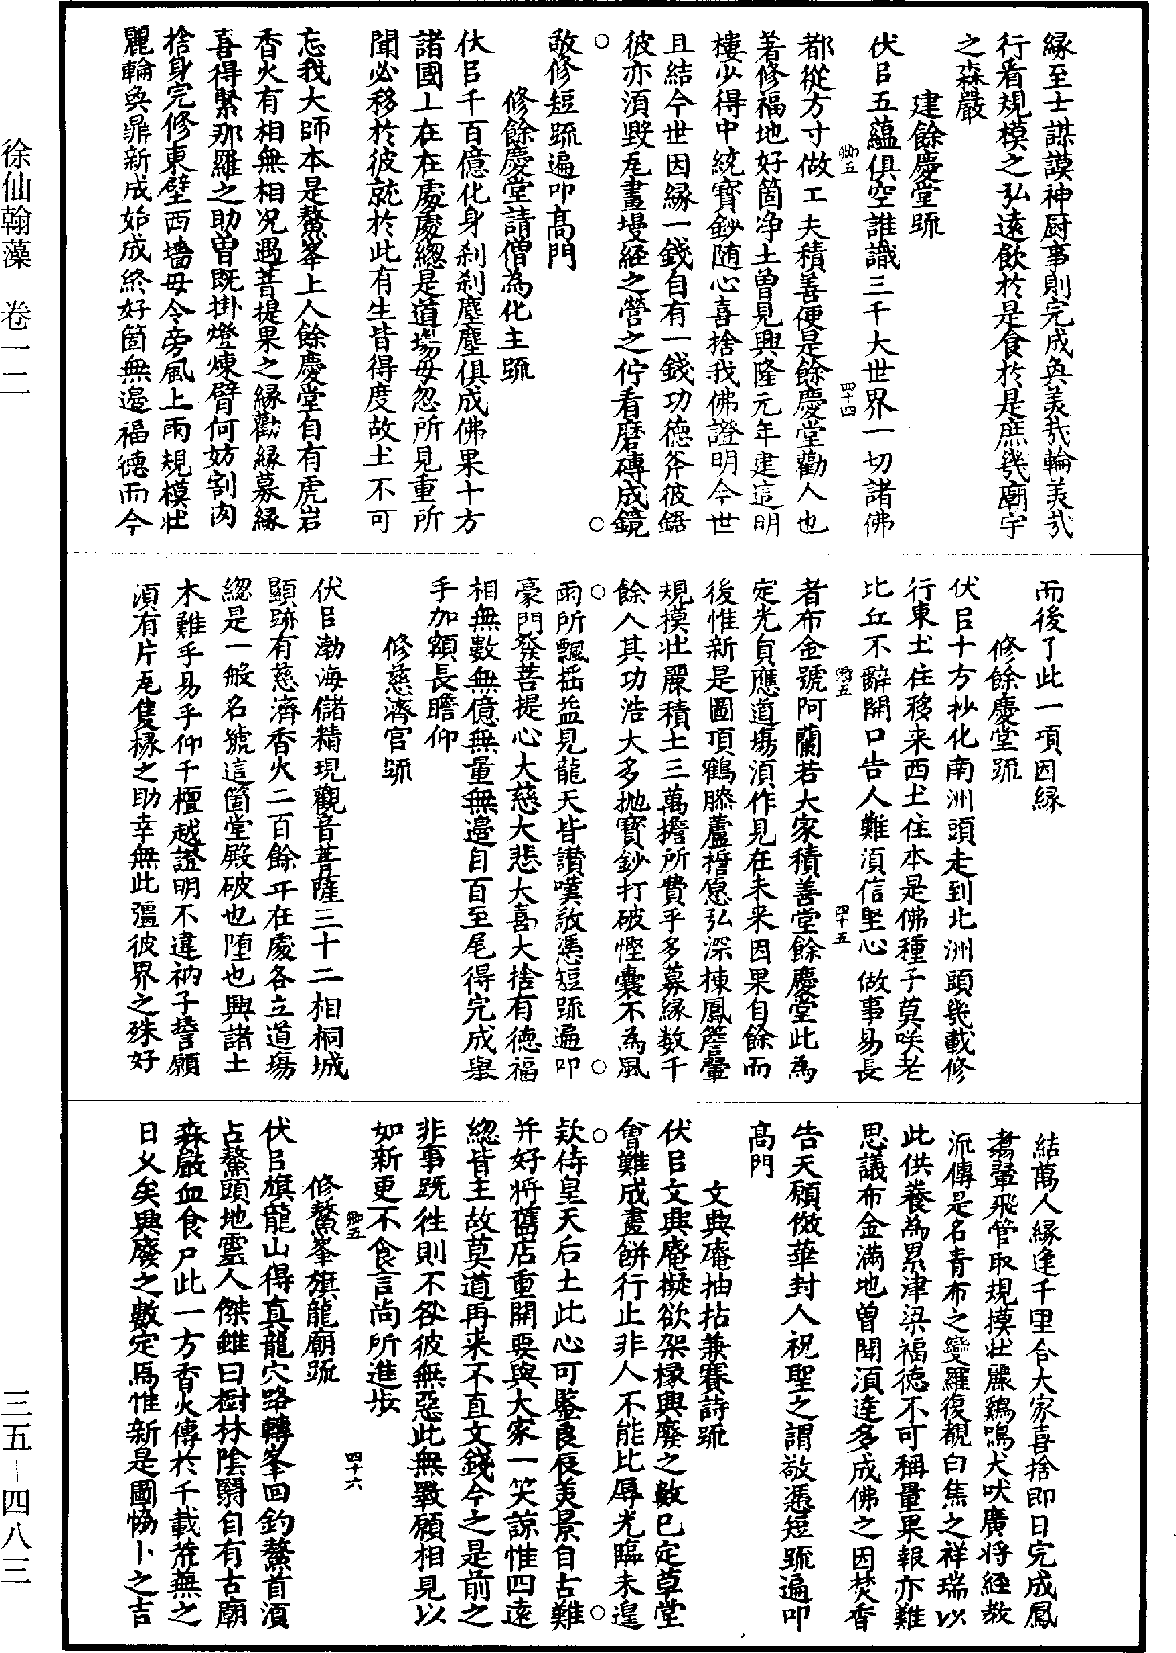 徐仙翰藻　卷一二
三五—四八三
緣至士謀謨神厨事則完成奐美哉輪美哉
行看規模之弘遠飲於是食於是庶㡬廟宇
之森嚴
建餘慶堂䟽
伏㠯五蘊俱空誰識三千大世界一切諸佛
都從方寸做工夫積善便是餘慶堂勸人也
著修福地好箇净土曾見興隆元年建這明
樓少得中統寳鈔随心喜捨我佛證明今世
且結今世因緣一錢自有一錢功德斧彼鋸
彼亦湏毀𤬦畫墁經之營之佇看磨磚成鏡
敬修短䟽遍叩髙門
修餘慶堂請僧為化主䟽
伏㠯千百億化身刹刹塵塵俱成佛果十方
諸國土在在處處緫是道場毋忽所見重所
聞必移於彼就於此有生皆得度故土不可
忘我大師本是鰲峯上人餘慶堂自有虎岩
香火有相無相况遇菩提果之緣勸緣募緣
喜得緊那羅之助曽既掛燈煉臂何妨割肉
捨身完修東壁西墻毋令旁風上雨規模壮
麗輪奐鼎新成始成終好箇無邉福德而今
而後了此一項因緣
修餘慶堂䟽
伏㠯十方抄化南洲頭走到北洲頭㡬載修
行東土住移来西土住本是佛種子莫咲老
比丘不辭開口告人難湏信堅心做事易長
者布金號阿蘭若大家積善堂餘慶堂此為
定光貟應道塲湏作見在未来因果自餘而
後惟新是圖頂鶴膝蘆擔愿弘深棟鳳簷翬
規模壮麗積土三萬擔所費乎多募緣数千
餘人其功浩大多抛寳鈔打破慳囊不為風
雨所飄揺益見龍天皆讃嘆敬憑短䟽遍叩
豪門發菩提心大慈大悲大喜大捨有徳福
相無數無億無量無邉自百至尾得完成舉
手加額長瞻仰
修慈濟宫䟽
伏㠯渤海儲精現觀音菩薩三十二相桐城
顯跡有慈濟香火二百餘年在處各立道塲
緫是一般名號這箇堂殿破也堕也興諸土
木難乎易乎仰千檀越證明不違衲子誓願
湏有片𤬦隻椽之助幸無此疆彼界之殊好
結萬人緣逢千里合大家喜捨即日完成鳳
翥翬飛管取規模壮麗鷄鳴犬吠廣將經教
流傳是名青布之變羅復覩白焦之祥瑞以
此供養為累津梁福德不可稱量果報亦難
思議布金滿地曽聞湏逹多成佛之因焚香
告天願倣華封人祝聖之謂敬憑短䟽遍叩
髙門
文典庵抽拈兼賽詩䟽
伏㠯文典庵擬欲架椽興廢之數已定草堂
曾難成畫餅行止非人不能比辱光臨未遑
欵待皇天后土此心可鍳良夜美景自古難
并好將舊店重開要與大家一笑諒惟四遠
緫皆王故莫道再来不直文錢今之是前之
非事既徃則不咎彼無惡此無斁願相見以
如新更不食言尚所進步
修鰲峯旗龍廟䟽
伏㠯旗龍山得真龍穴路轉峯回釣鰲首湏
占鰲頭地靈人傑雖曰樹林陰翳自有古廟
森嚴血食尸此一方香火傳於千載荒蕪之
日乆矣興廢之數定焉惟新是圖恊卜之吉
四十四
四十五
四十六